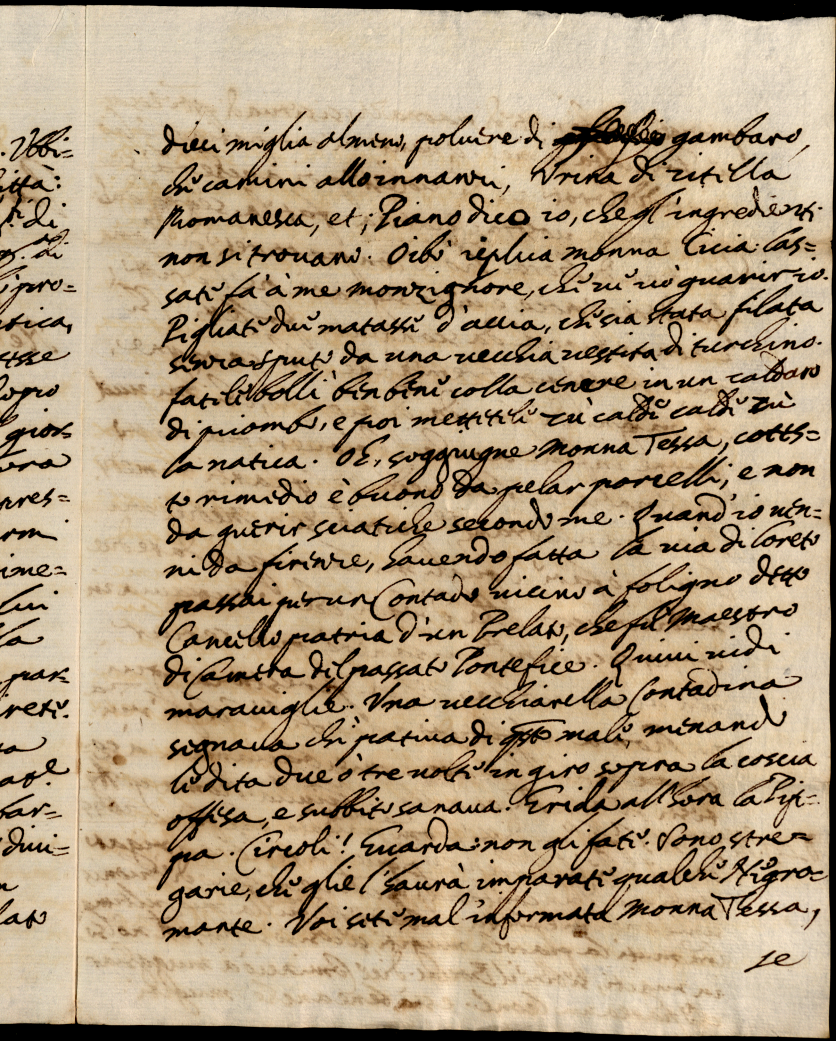 dieci miglia almeno, poluere di gambaro,
che camini allo innanzi, Vrina di zitella
Romanesca, et; Piano dico io, che gl'ingredienti
non si trouano. Oibò replica monna Cicia. las=
sate fa à me monzignore, che ui uò guarir io.
Pigliate due matasse d'accia, che sia stata filata
senza sputo da una uecchia uestita di turchino.
fatele bollì ben bene colla cenere in un caldaro
di piombo, e poi mettetele sù calde calde sù
la natica. Oh, soggiugne Monna Tessa, cotes=
to rimedio è buono da pelar porcelli, e non
da guerir sciatiche secondo me. Quand'io uen=
ni da firenze, hauendo fatta la uia di loreto
passai per un Contado uicino à foligno detto
Cancello patria d'un Prelato, che fù Maestro
di Camera del passato Pontefice. Quiui uidi
marauiglie. Una uecchiarella Contadina
segnaua chi patiua di qsto male, menando
le dita due ò tre uolte in giro sopra la coscia
offesa, e subbito sanaua. Grida all'hora la Pip=
pa. Circoli! Guarda: non gli fate. Sono stre=
garie, che glie l'haurà imparate qualche Nigro=
mante. Voi sete mal'informata Monna Tessa,
se
. Vbbi=
ittà:
di
di
pro=
atica,
esse
opio
gior=
ora
pres=
rmi
ime=
lui
la
par=
rete.
ta
bar=
diui=
n
lato